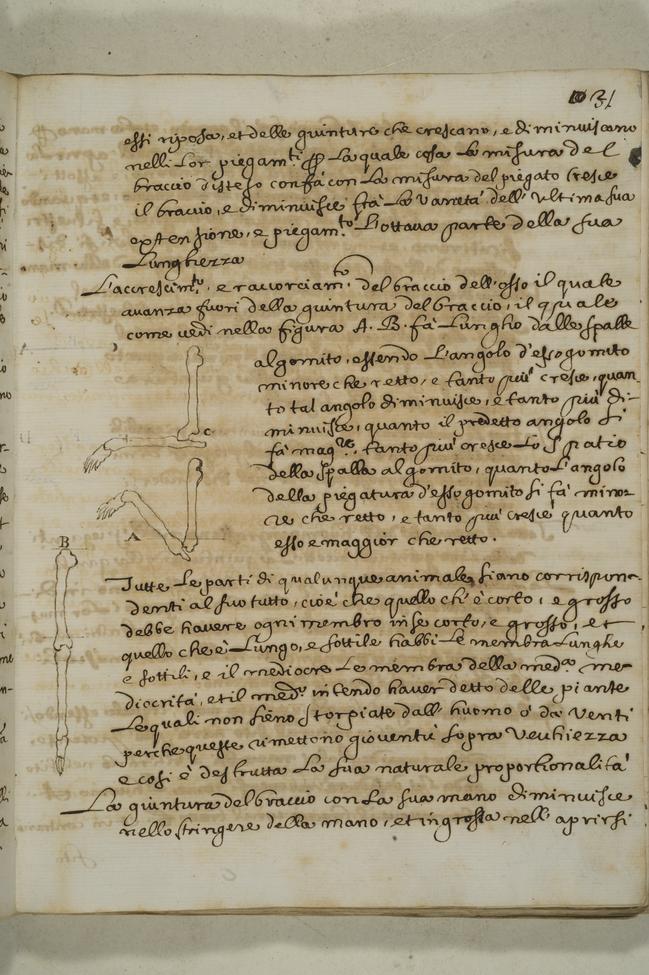 31
essi riposa, et delle giunture che crescano, e diminuiscano
nelli lor piegam.ti la quale cosa la misura del
braccio disteso confà con la misura del piegato cresce
il braccio, e diminuisce frà la varietà dell' ultima sua
extensione, e piegam.to l'ottava parte della sua
Lunghezza
L'accrescim.to, e racorciam.to del braccio dell' osso il quale
avanza fuori della giuntura del braccio, il quale
come vedi nella figura A. B. fà lungho dalle spalle
al gomito, essendo l'angolo d'esso gomito
minore che retto, e tanto più cresce, quan-
to tal angolo diminuisce, e tanto più di-
minuisce, quanto il predetto angolo si
fà mag.re, tanto più cresce lo spatio
della spalla al gomito, quanto l'angolo
della piegatura d'esso gomito si fà mino-
re che retto, e tanto più cresce quanto
esso e maggior che retto.
C
A
B
Tutte le parti di qualunque animale siano corrispon-
denti al suo tutto, cioè che quello ch'è corto, e grosso
debbe havere ogni membro in se corto, e grosso, et
quello che è lungo, e sottile habbi le membra lunghe
e sottili, e il mediocre le membra della med.a me-
diocrità, et il med.o intendo haver detto delle piante
le quali non sieno storpiate dall' huomo ò da venti
perche queste rimettono gioventù sopra vechiezza
e così è destrutta la sua naturale proportionalità
La giuntura del braccio con la sua mano diminuisce
nello stringere della mano, et ingrossa nell' aprirsi